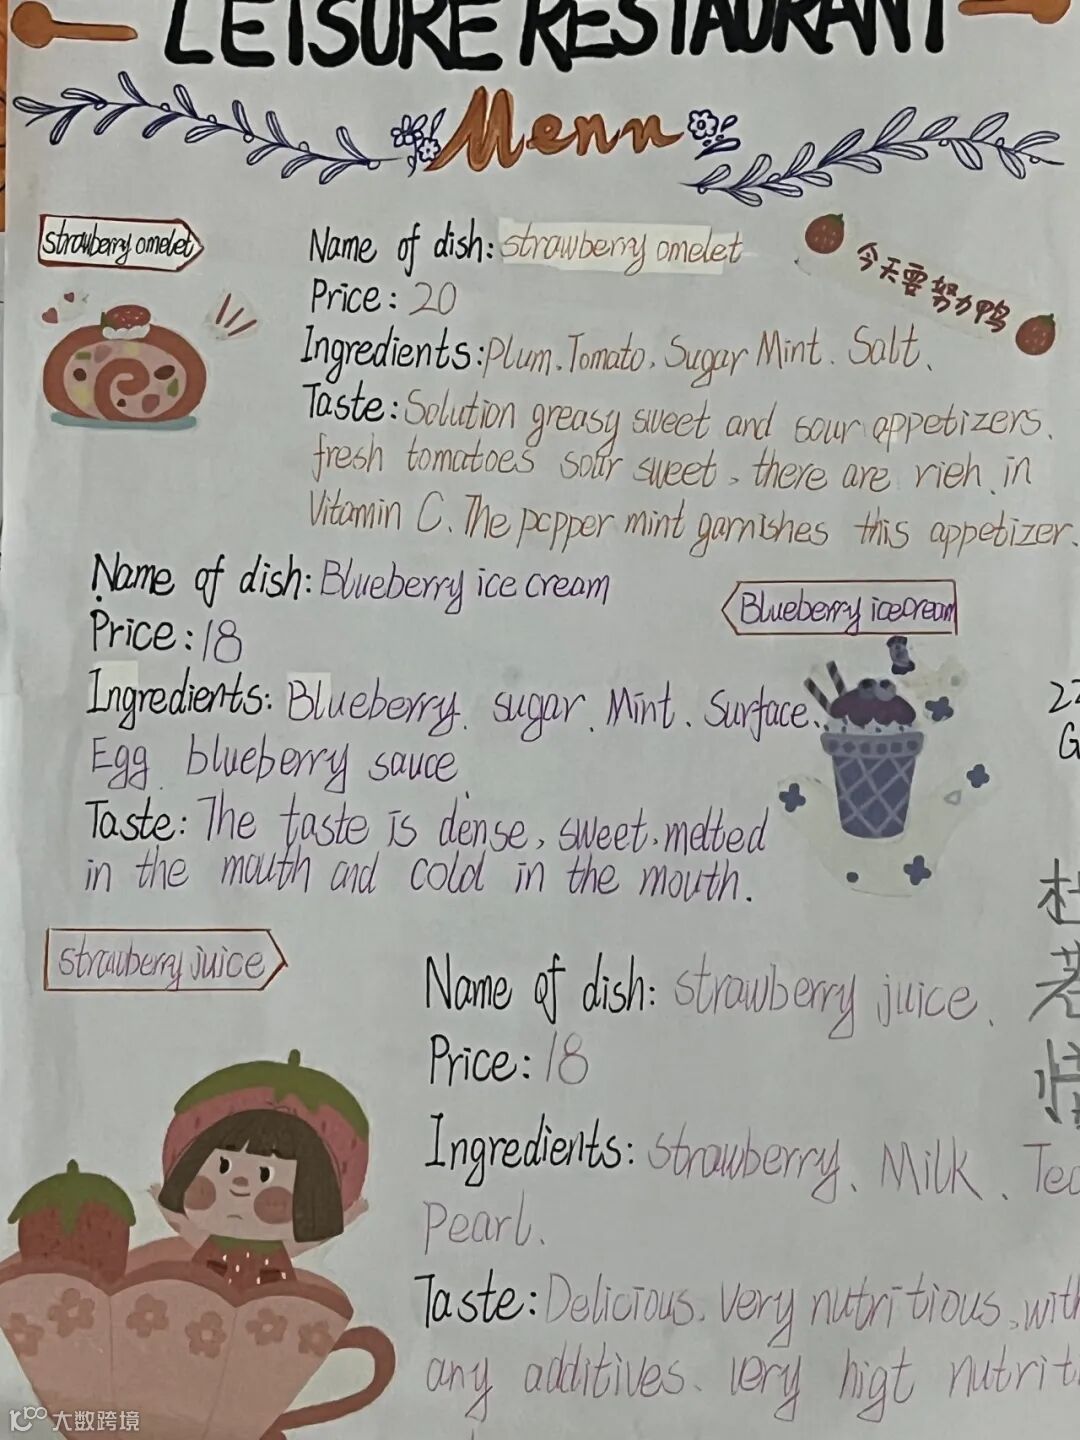 LEISURE RESTAURANT
Menn
strawberry omelet
Name of dish: strawberry omelet
今天要努力鸭
Price: 20
Ingredients: Plum. Tomato. Sugar Mint. Salt.
Taste: Solution greasy sweet and sour appetizers.
fresh tomatoes sour sweet, there are rieh in
Vitamin C. The pcpper mint garnishes this appetizer.
Name of dish: Blueberry ice cream
Blueberry icecream
Price: 18
Ingredients: Blueberry. sugar. Mint. Surface.
Egg blueberry sauce
Taste: The taste is dense, sweet, melted
in the mouth and cold in the mouth.
strawberry juice
Name of dish: strawberry juice.
Price: 18
Ingredients: strawberry. Milk.
Pearl.
Taste: Delicious. Very nutritious, with
any additives. very higt
大数跨境